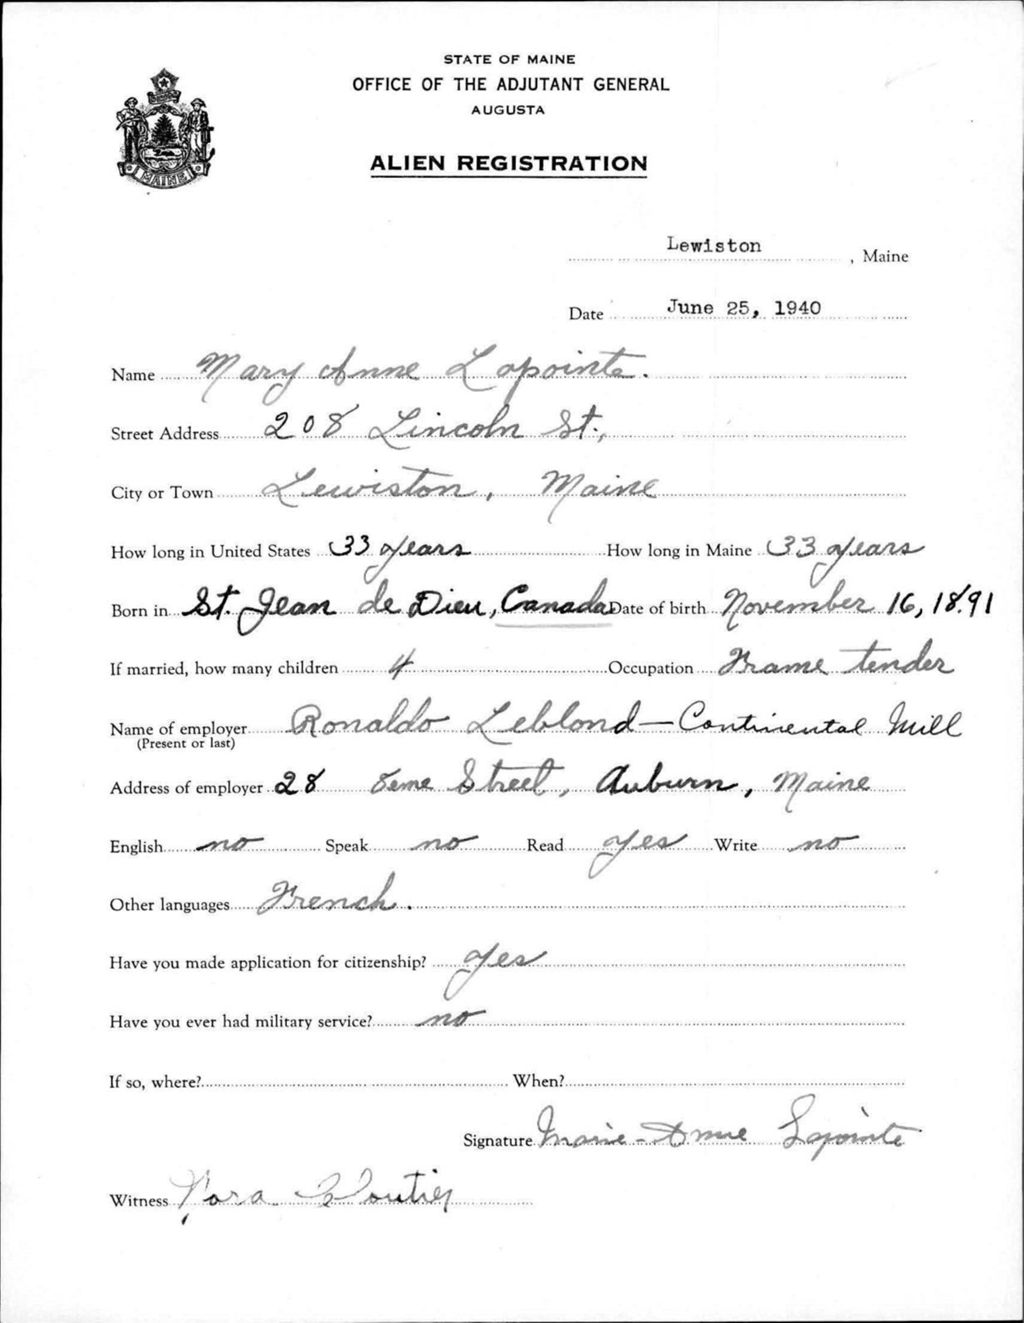 STATE OF MAINE
OFFICE OF THE ADJUTANT GENERAL
AUGUSTA
ALIEN REGISTRATION
MAINE
Lewiston, Maine
Date June 25, 1940
Name Mary Anne Lapointe.
Street Address 208 Lincoln St.,
City or Town Lewiston, Maine
How long in United States 33 years How long in Maine 33 years
Born in St. Jean de Dieu, Canada Date of birth November 16, 1891
If married, how many children 4 Occupation Frame tender
Name of employer Ronaldo Leblond — Continental Mill
(Present or last)
Address of employer 28 8eme Street, Auburn, Maine
English no Speak no Read yes Write no
Other languages French.
Have you made application for citizenship? yes
Have you ever had military service? no
If so, where? When?
Signature Marie-Anne Lapointe
Witness Nora Cloutier